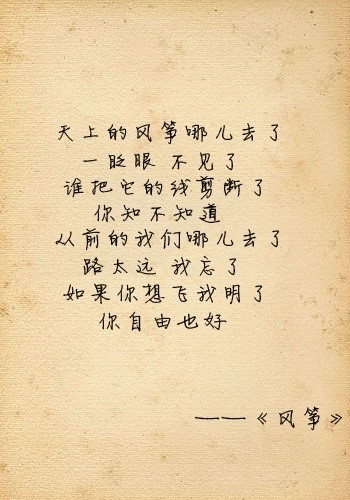 天上的风筝哪儿去了
一眨眼 不见了
谁把它的线剪断了
你知不知道
从前的我们哪儿去了
路太远 我忘了
如果你想飞我明了
你自由也好
——《风筝》